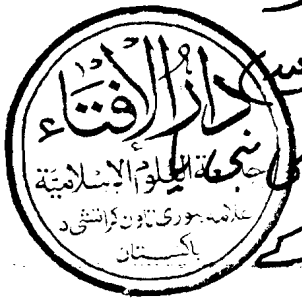 دار الإفتاء
جامعة العلوم الإسلامية
علامہ بنوری ٹاؤن کراتشی ٥
پاکستان